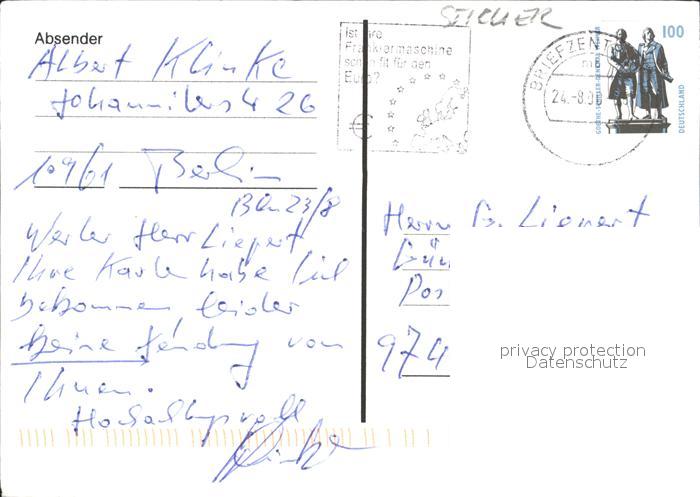 STICHER
Absender
Albert Klinke
Johanniterstr 26
10961 Berlin
Bln 23/8
Werter Herr Liepert
Ihre Karte habe ich
bekommen leider
keine Sendung von
Ihnen.
Hochachtungsvoll
Klinke
Ist Ihre
Frankiermaschine
schon fit für den
Euro?
€
BRIEFZENT
24.-8.0
100
DEUTSCHLAND
GOETHE-SCHILLER-DENKMAL WEIMAR
Herrn G. Liepert
Gün
Pos
974
privacy protection
Datenschutz